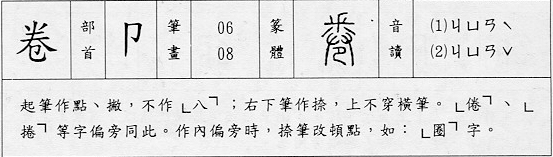 卷 部首 卩 筆畫 06 08 篆體 音讀 (1)ㄐㄩㄢˋ (2)ㄐㄩㄢˇ
起筆作點、撇，不作「八」；右下筆作捺，上不穿橫筆。「倦」、「
捲」等字偏旁同此。作內偏旁時，捺筆改頓點，如：「圈」字。